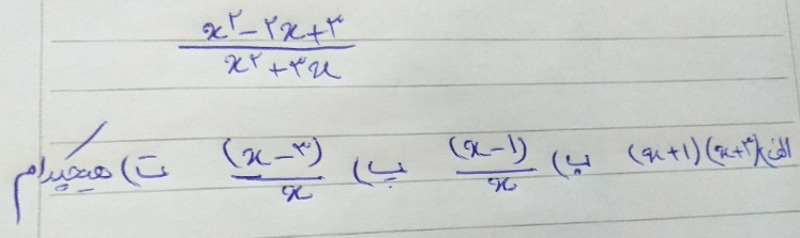 x^۲ - ۲x + ۳
x^۲ + ۳x
الف) (x+1)(x+۳) ب) (x-1)/x پ) (x-۳)/x ت) هیچکدام